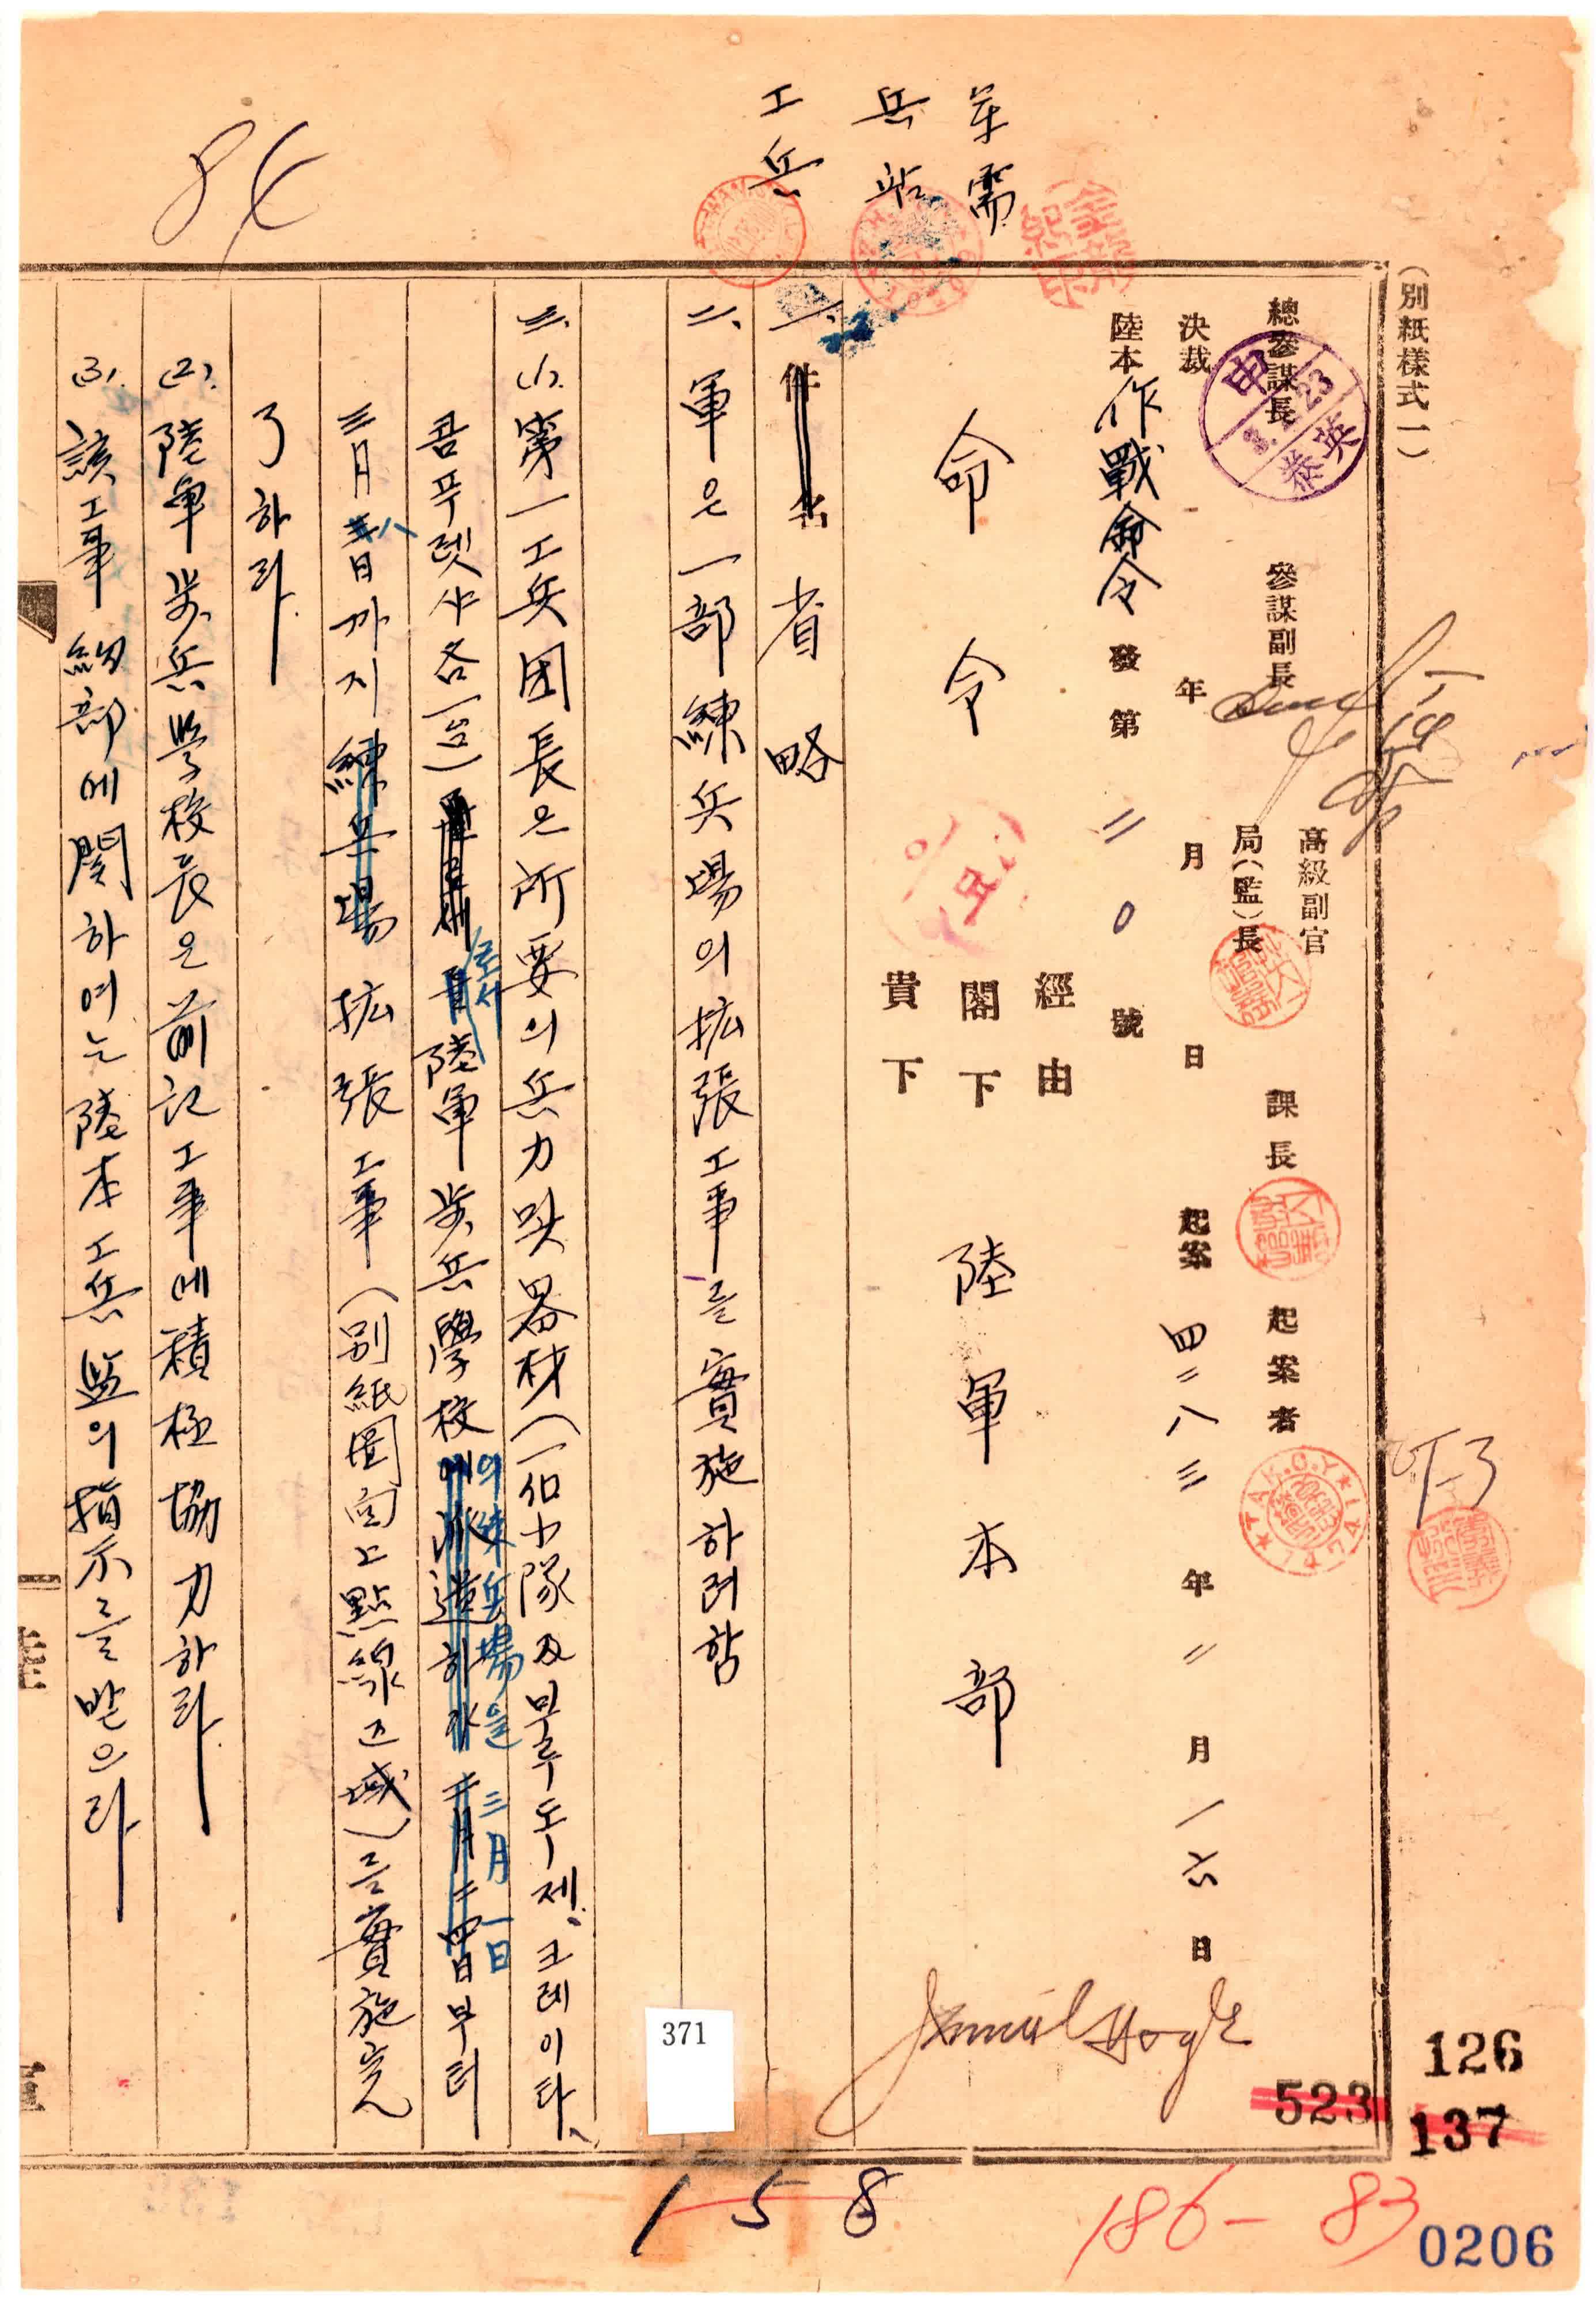 (別紙樣式一)
總參謀長
參謀副長
高級副官
局(監)長
課長
起案者
決裁
年
月
日
起案 四二八三年二月一六日
陸本作戰命令 發第二0號
軍需
兵站
工兵
84
申
英
泰
經由
閣下
貴下
命令
陸軍本部
一、件名省略
二、軍은一部練兵場의拡張工事를實施하려함
三、(1).第一工兵团長은所要의兵力및器材(一個小隊及부루도-제、크레이다、
콤푸렛사各一台)로서陸軍步兵學校의練兵場을三月一日부터
三月 八日까지練兵場拡張工事(別紙圖面上點線区域)를實施完
了하라.
(2).陸軍步兵學校長은前記工事에積極協力하라.
(3).該工事細部에関하여는陸本工兵監의指示를받으라
371
126
523
137
158
186-83
0206